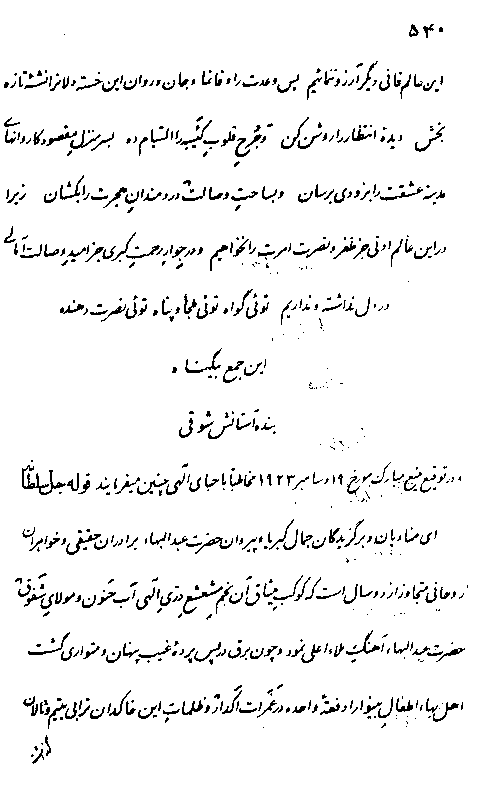 ۵۴۰
این عالم فانی دیگر آرزو ننمائیم پس وعدت را وفا نما و جان و روان این خسته دلانرا نشئه تازه
بخش دیدهٔ انتظار را روشن کن و جرح قلوب کئیبه را التیام ده بسر منزل مقصود کاروانهای
مدینه عشقت را بزودی برسان و بساحت وصالت دردمندان هجرت را بکشان زیرا
در این عالم ادنی جز ظفر و نصرت امرت را نخواهیم و در جوار رحمت کبری جز امید وصالت آمالی
در دل نداشته و نداریم توئی گواه توئی ملجأ و پناه توئی نصرت دهنده
این جمع بیگناه
بنده آستانش شوقی
و در توقیع منیع مبارک مورخ ۱۹ دسامبر ۱۹۲۳ مخاطباً باحبای الهی چنین میفرمایند قوله جل سلطانه
ای منادیان و برگزیدگان جمال کبریا و پیروان حضرت عبدالبهاء برادران حقیقی و خواهران
روحانی متجاوز از دو سال است که کوکب میثاق آن نجم مشعشع درّی الهی آب حنون و مولای شفوق
حضرت عبدالبهاء آهنگ ملاء اعلی نمود و چون برق در پس پردهٔ غیب پنهان و متواری گشت
اهل بهاء اطفال بینوا را دفعةً واحده در غمرات گذاشت و ظلمات این خاکدان ترابی یتیم و نالان